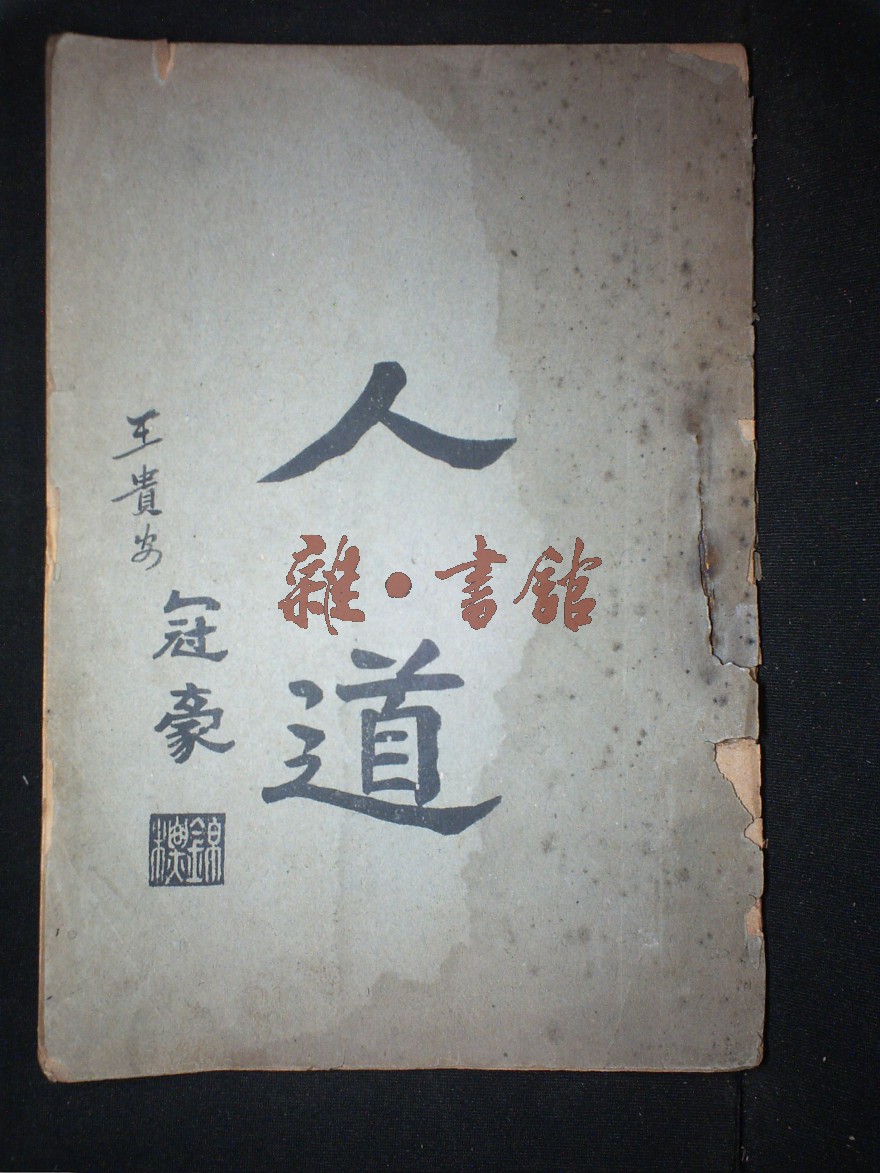 人道
雜·書館
王貴安
冠豪